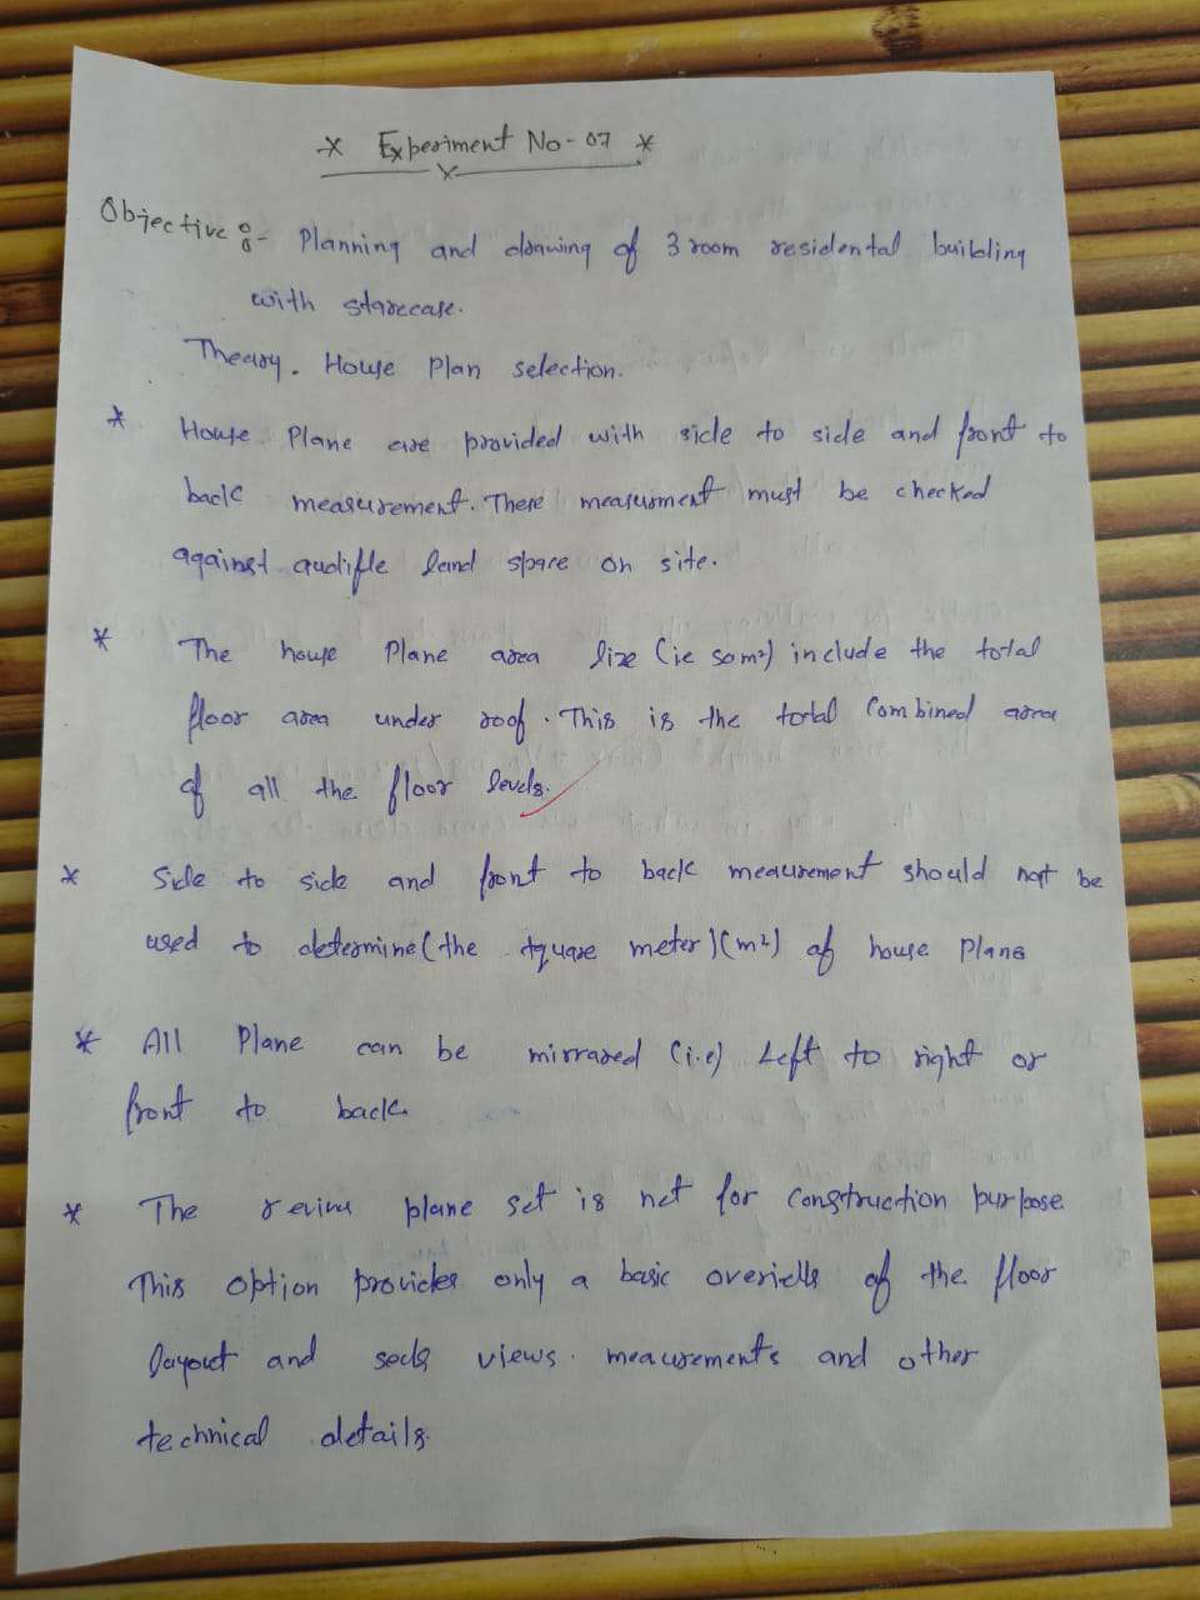 * Experiment No-07 *
Objective :- Planning and drawing of 3 room residental buibling
with starecase.
Theory. House Plan selection.
* House Plane are provided with side to side and front to
back measurement. These measurment must be checked
against land space on site.
* The house Plane area size (ie som²) include the total
floor area under roof. This is the total Combined area
of all the floor levels.
* Side to side and front to back meaurement should not be
used to determine (the square meter) (m²) of house Plane
* All Plane can be mirrared (i.e) Left to right or
front to back.
* The plane set is not for construction purpose.
This option provides only a basic of the floor
layout and views. meaurements and other
technical details.